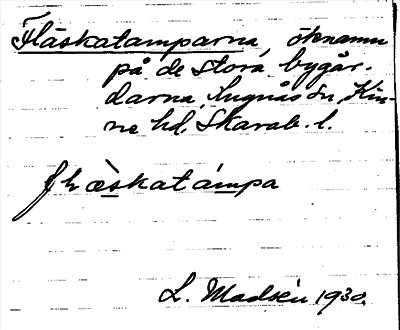 Fläskatamparna, öknamn
på de stora bygår-
darna, Lugnås sn, Kin-
ne hd, Skarab. l.
flæskatámpa
L. Madsén 1930.